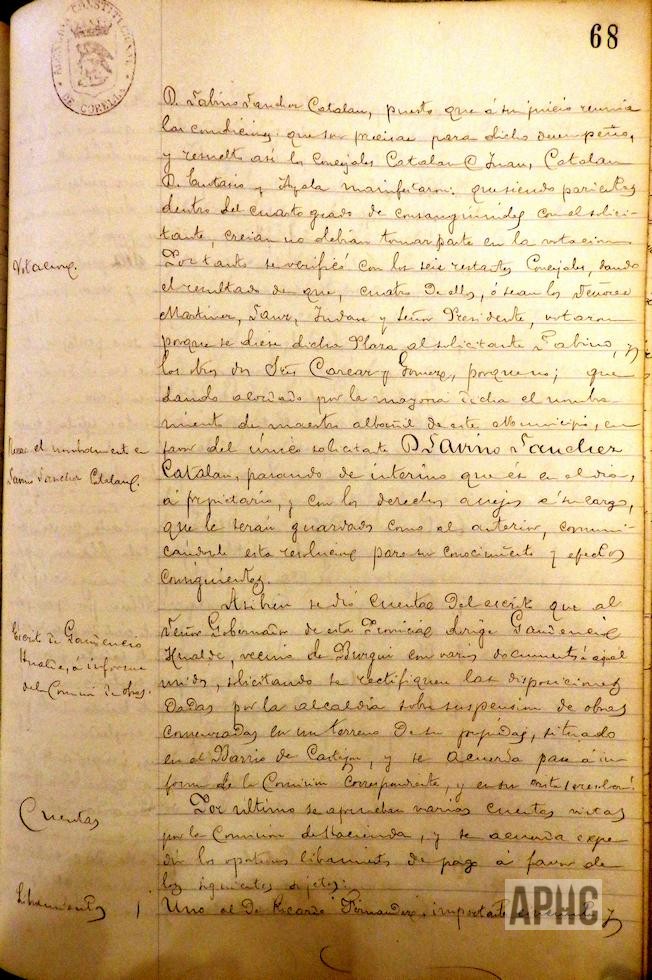 ALCALDIA CONSTITUCIONAL DE CORELLA
68
D. Sabino Sanchez Catalan, puesto que á su juicio reunia
las condiciones que son precisas para dicho desempeño,
y resuelto así los Concejales Catalan D. Juan, Catalan
D. Eustasio y Ayala manifestaron: que siendo parientes
dentro del cuarto grado de consanguinidad con el solici-
tante, creian no debian tomar parte en la votacion
Votacion.
Por tanto se verificó con los seis restantes Concejales, dando
el resultado de que, cuatro de ellos, ó sean los Señores
Martinez, Sanz, y Señor Presidente, votaron
porque se diese dicha Plaza al solicitante Sabino, y
los otros dos Sres Carcar y Gomez, porque no; que
dando acordado por la mayoria dicha el nombra-
miento de maestro albañil de este Municipio, en
Recae el nombramiento en
Savino Sanchez Catalan.
favor del único solicitante D. Savino Sanchez
Catalan, pasando de interino que és en el dia,
á propietario, y con los derechos anejos á su cargo,
que le serán guardados como al anterior, comuni-
candole esta resolucion para su conocimiento y efectos
consiguientes.
Escrito de Gaudencio
Hualde, á informe
de la Comision de obras.
Asi bien se dió cuenta del escrito que al
Señor Gobernador de esta Provincia dirige Gaudencio
Hualde, vecino de Burgui con varios documentos á aquel
unidos, solicitando se rectifiquen las disposiciones
dadas por la alcaldia sobre suspension de obras
comenzadas en un terreno de su propiedad, situado
en el Barrio de Castejon, y se acuerda pase á in-
forme de la Comision correspondiente, y en su vista se resolverá
Cuentas
Por último se aprueban varias cuentas vistas
por la Comision de Hacienda, y se acuerda expe-
dir los oportunos libramientos de pago á favor de
los siguientes sujetos:
Libramientos 1
Uno al D. Ricardo Fernandez, importante y
APHC